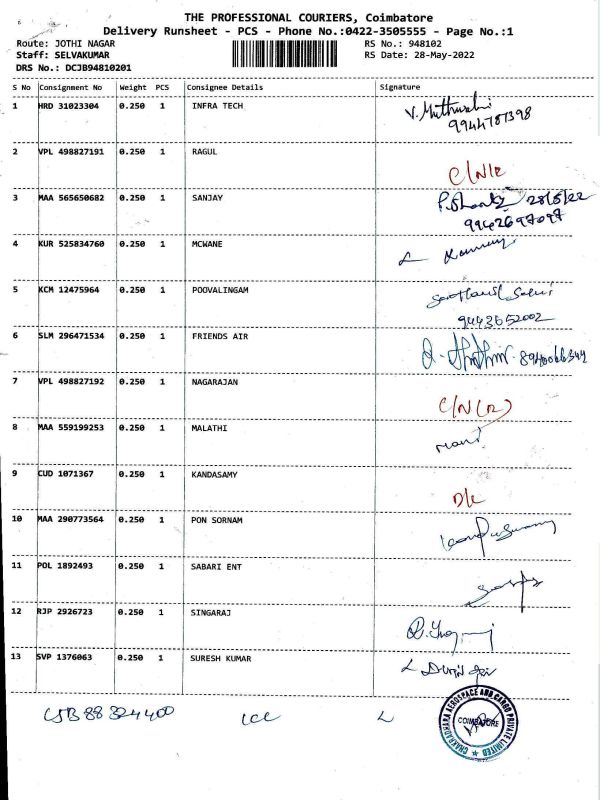 THE PROFESSIONAL COURIERS, Coimbatore
Delivery Runsheet - PCS - Phone No.:0422-3505555 - Page No.:1
Route: JOTHI NAGAR RS No.: 948102
Staff: SELVAKUMAR RS Date: 28-May-2022
DRS No.: DCJB94810201
S No Consignment No Weight PCS Consignee Details Signature
1 HRD 31023304 0.250 1 INFRA TECH
2 VPL 498827191 0.250 1 RAGUL
3 MAA 565650682 0.250 1 SANJAY 28/5/22
9942697097
4 KUR 525834760 0.250 1 MCWANE
5 KCM 12475964 0.250 1 POOVALINGAM
9443652002
6 SLM 296471534 0.250 1 FRIENDS AIR
7 VPL 498827192 0.250 1 NAGARAJAN C/N(R)
8 MAA 559199253 0.250 1 MALATHI Mani
9 CUD 1071367 0.250 1 KANDASAMY D/L
10 MAA 290773564 0.250 1 PON SORNAM
11 POL 1892493 0.250 1 SABARI ENT
12 RJP 2926723 0.250 1 SINGARAJ
13 SVP 1376063 0.250 1 SURESH KUMAR
CHAKRADHARA AEROSPACE AND CARGO PRIVATE LIMITED
COIMBATORE